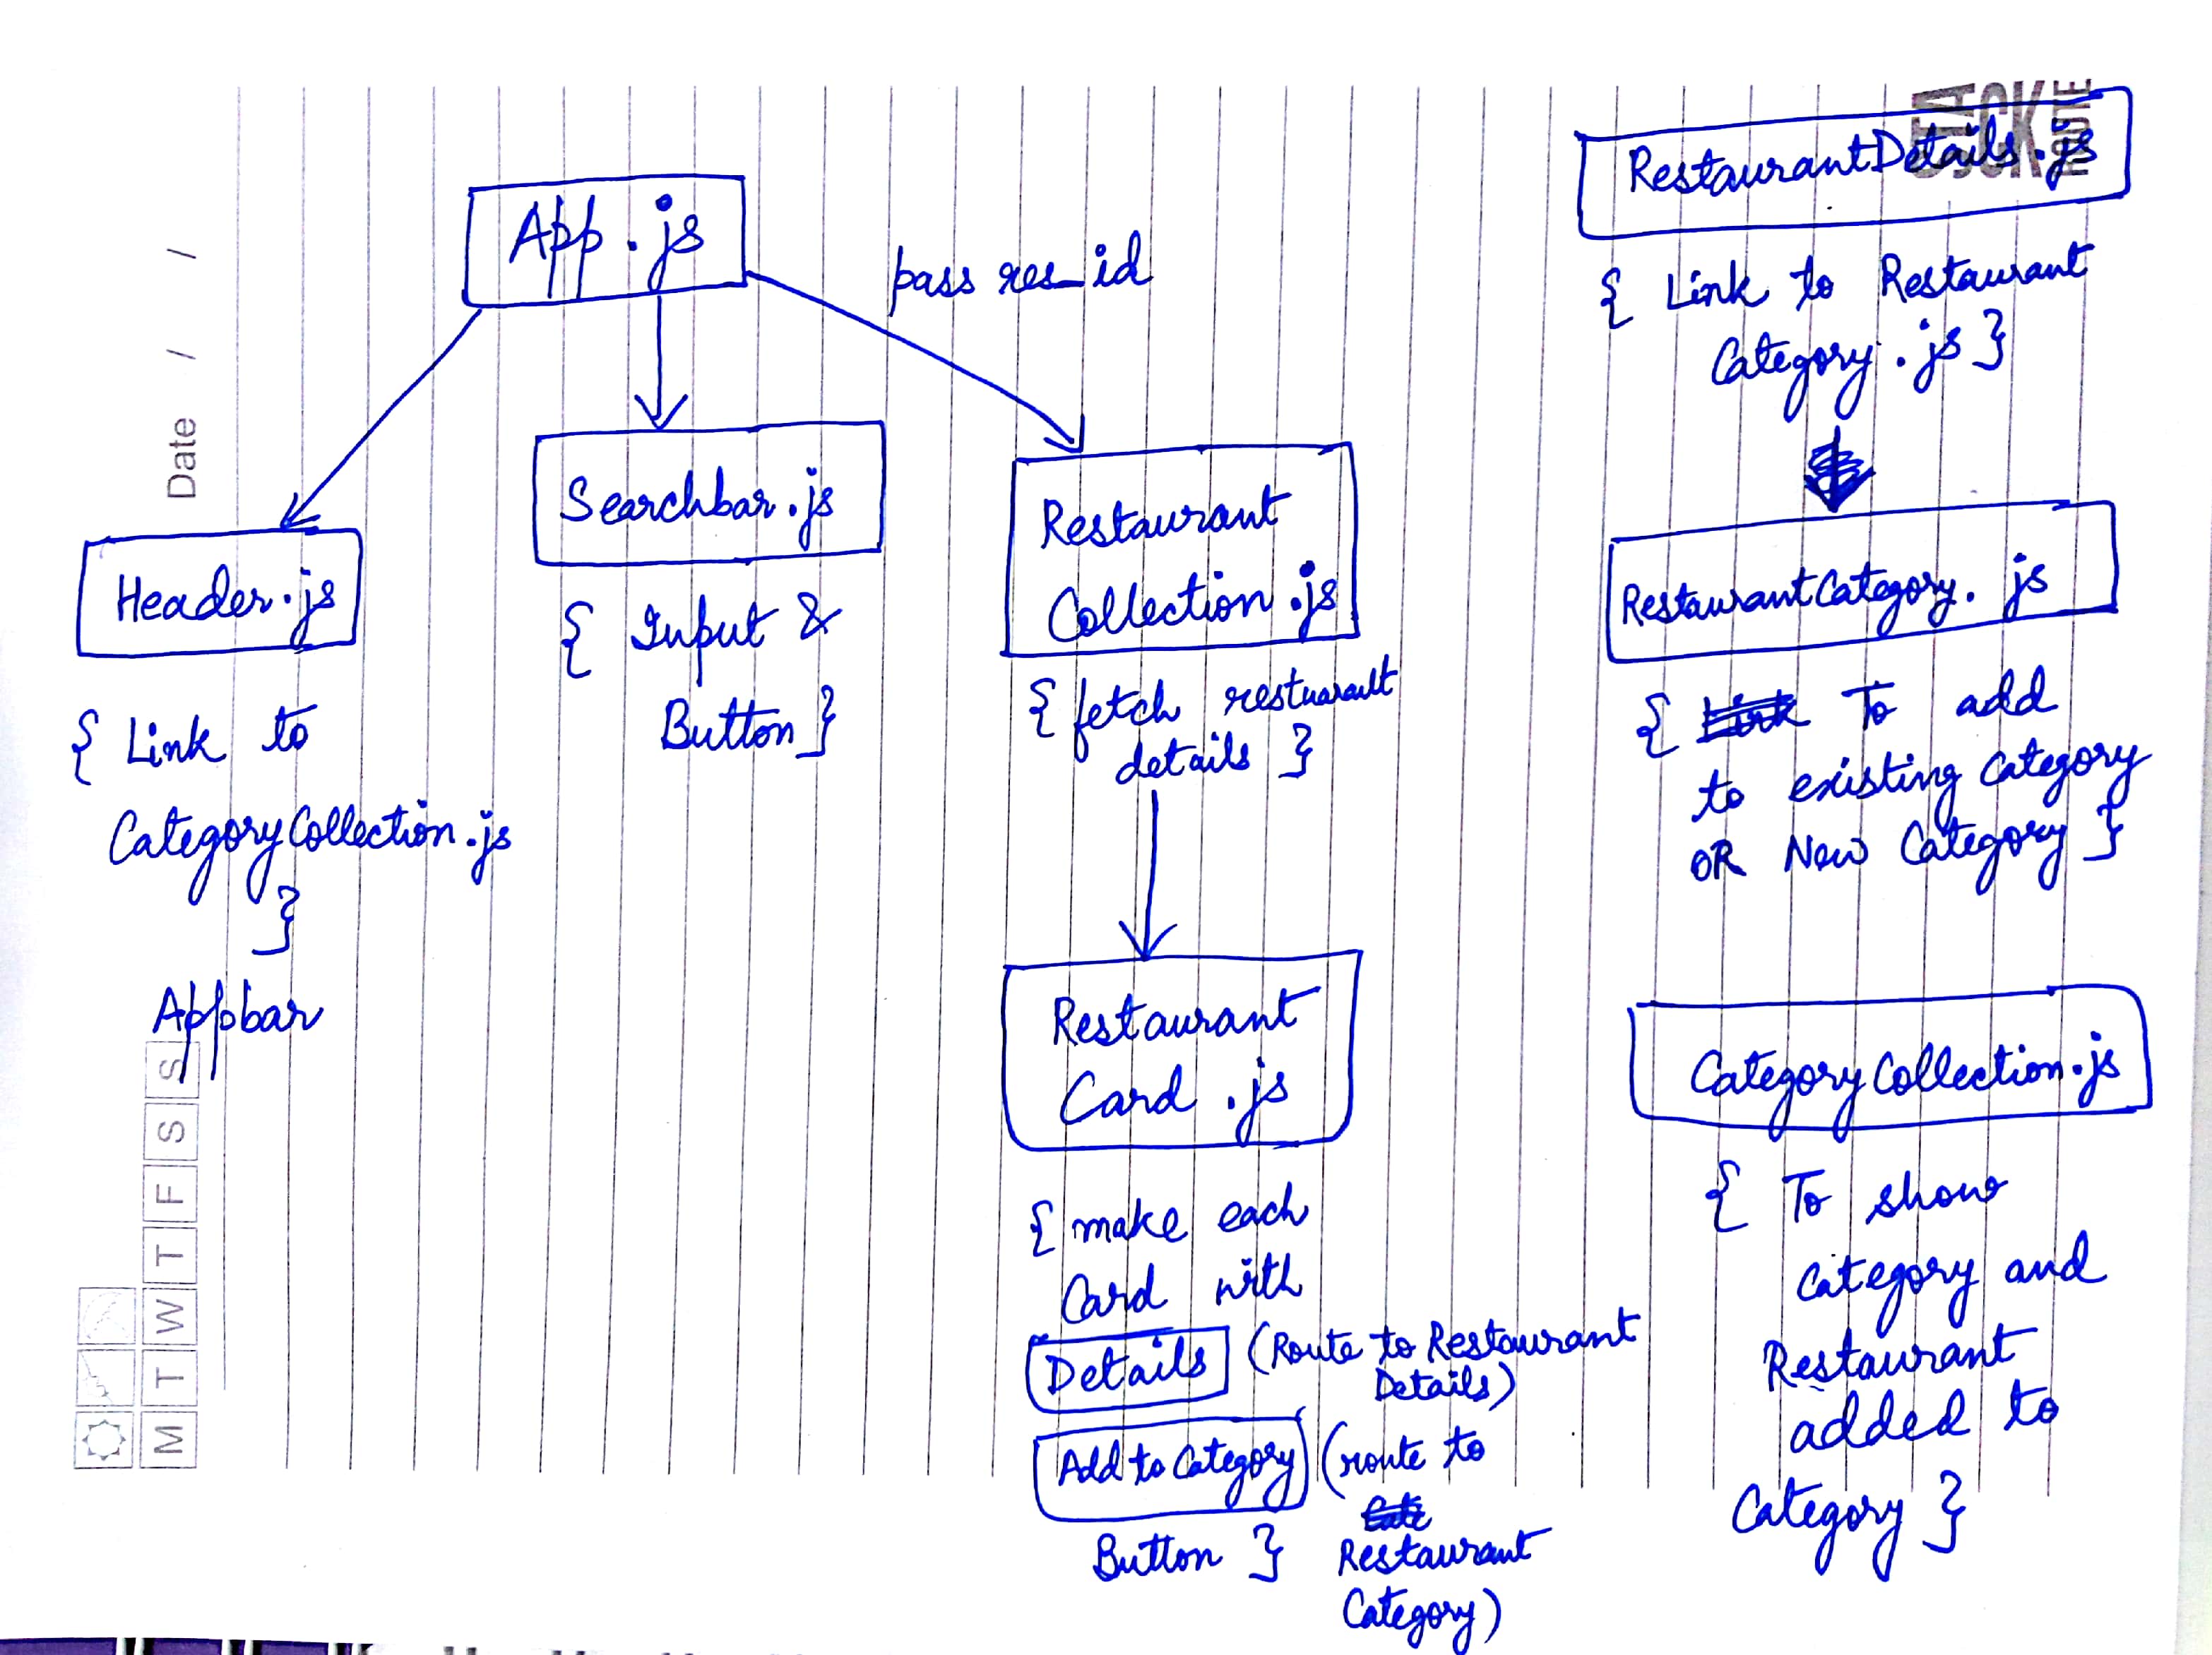 App.js
pass res_id
Header.js
{ Link to
CategoryCollection.js
}
Appbar
Searchbar.js
{ Input &
Button }
Restaurant
Collection.js
{ fetch restuarant
details }
Restaurant
Card.js
{ make each
Card with
Details (Route to Restaurant
Details)
Add to Category (route to
Restaurant
Category)
Button }
RestaurantDetails.js
{ Link to Restaurant
Category.js }
RestaurantCategory.js
{ Link To add
to existing category
OR New Category }
CategoryCollection.js
{ To show
category and
Restaurant
added to
Category }
STACK
ROUTE
Date / /
M T W T F S S